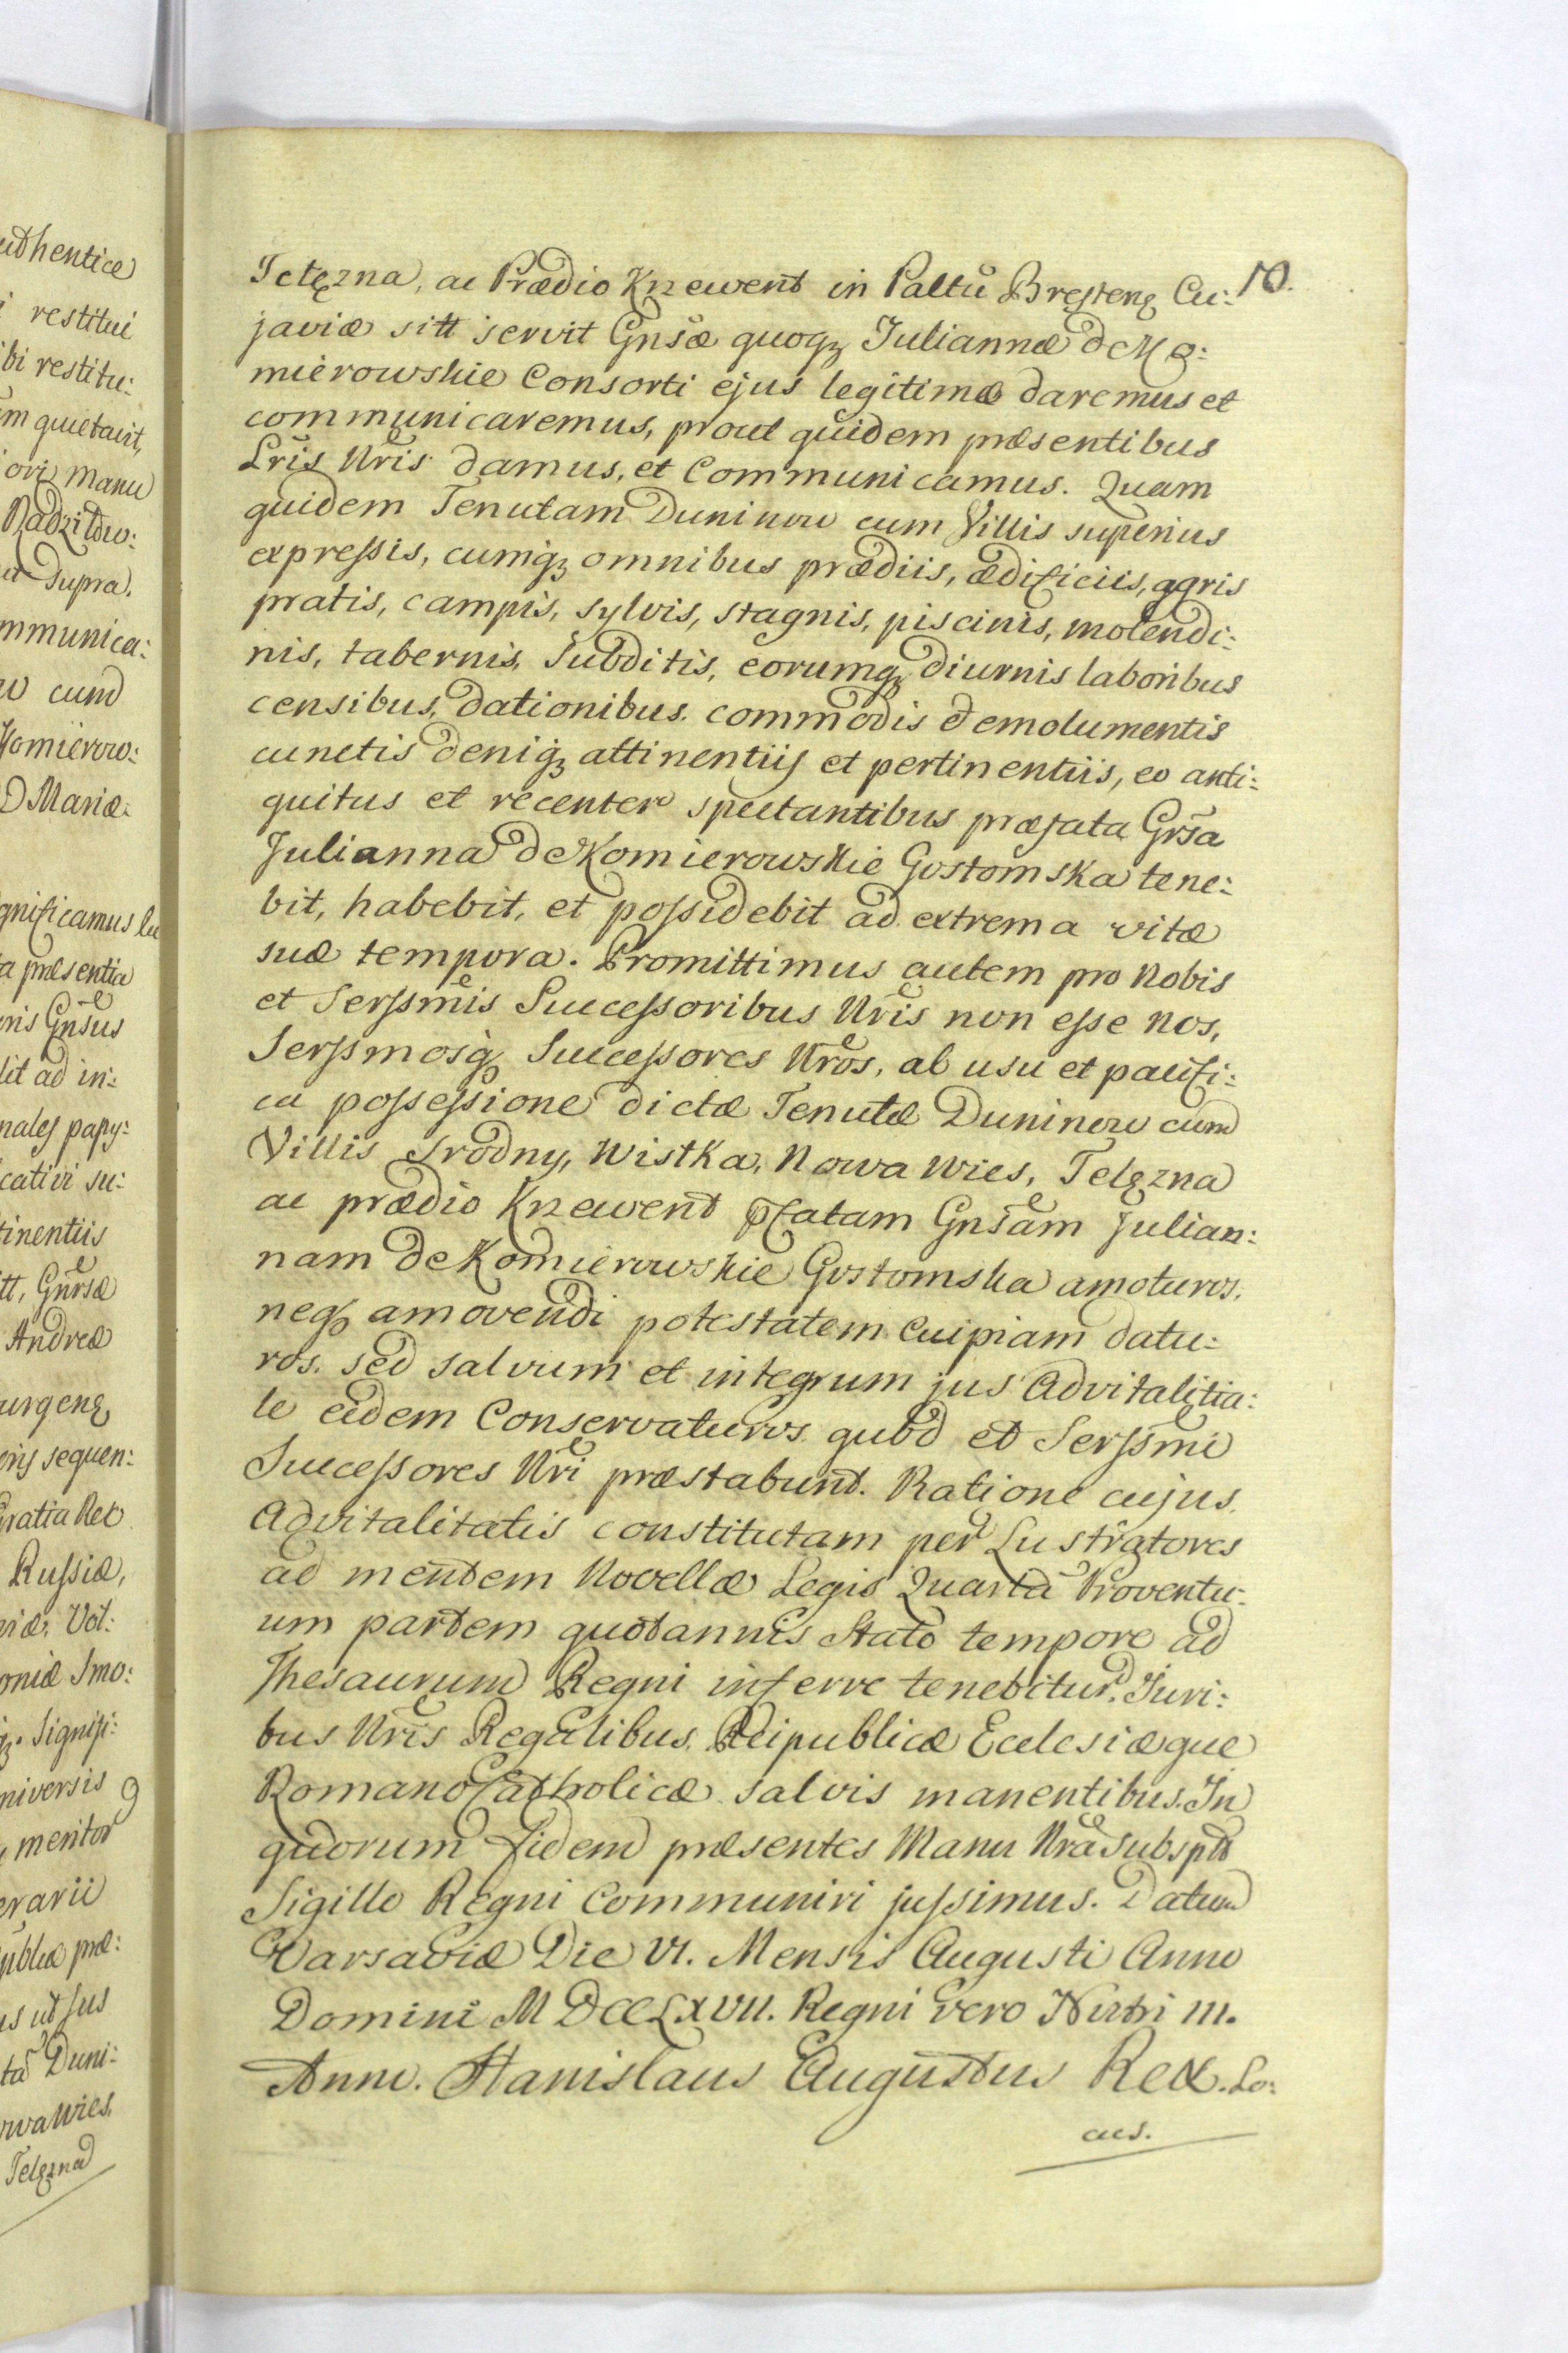 10.
Telęzna, ac Prædio Krzewent in Palttu Brestenȩ Cu:
javiæ sitt servit Gnsæ quoqȝ Juliannæ de Ko:
mierowskie Consorti ejus legitimæ daremus et
communicaremus, prout quidem præsentibus
Lris Nris damus, et Communicamus. Quam
quidem Tenutam Duninow cum Villis superius
expreſsis, cumqȝ omnibus prædiis, ædificiis, agris
pratis, campis, sylvis, stagnis, piscinis, molendi:
nis, tabernis, Subditis, eorumqȝ diurnis laboribus
censibus, dationibus. commodis et emolumentis
cunctis deniqȝ attinentiis et pertinentiis, eo anti:
quitus et recenter spectantibus præfata Grsa
Julianna de Komierowskie Gostomska tene:
bit, habebit, et poſsidebit ad extrema vitæ
suæ tempora. Promittimus autem pro Nobis
et Serſsmis Succeſsoribus Nris non eſse Nos,
Serſsmosqȝ Succeſsores Nros, ab usu et pacifi:
ca poſseſsione dictæ Tenutæ Duninow cum
Villis Srodny, Wistka, Nowa Wies, Telęzna
ac prædio Krzewent pfatam Gnsam Julian:
nam de Komierowskie Gostomska amoturos.
neqȝ amovendi potestatem Cuipiam datu:
ros. sed salvum et integrum jus Advitalitia:
le eidem Conservaturos quod et Serſsmi
Succeſsores Nri præstabunt. Ratione cujus
Advitalitatis constitutam per Lustratores
ad mentem Novellæ Legis Quarta Proventu:
um partem quotannis Stato tempore ad
Thesaurum Regni inferre tenebitur. Juri:
bus Nris Regalibus. Reipublicæ Ecclesiæque
Romano Catholicæ salvis manentibus. In
quorum Fidem præsentes Manu Nra Subsptt
Sigillo Regni Communiri juſsimus. Datum
Varsaviæ Die VI. Mensis Augusti Anno
Domini MDCCLXVII. Regni vero Nostri III.
Anno. Stanislaus Augustus Rex. Lo:
cus.